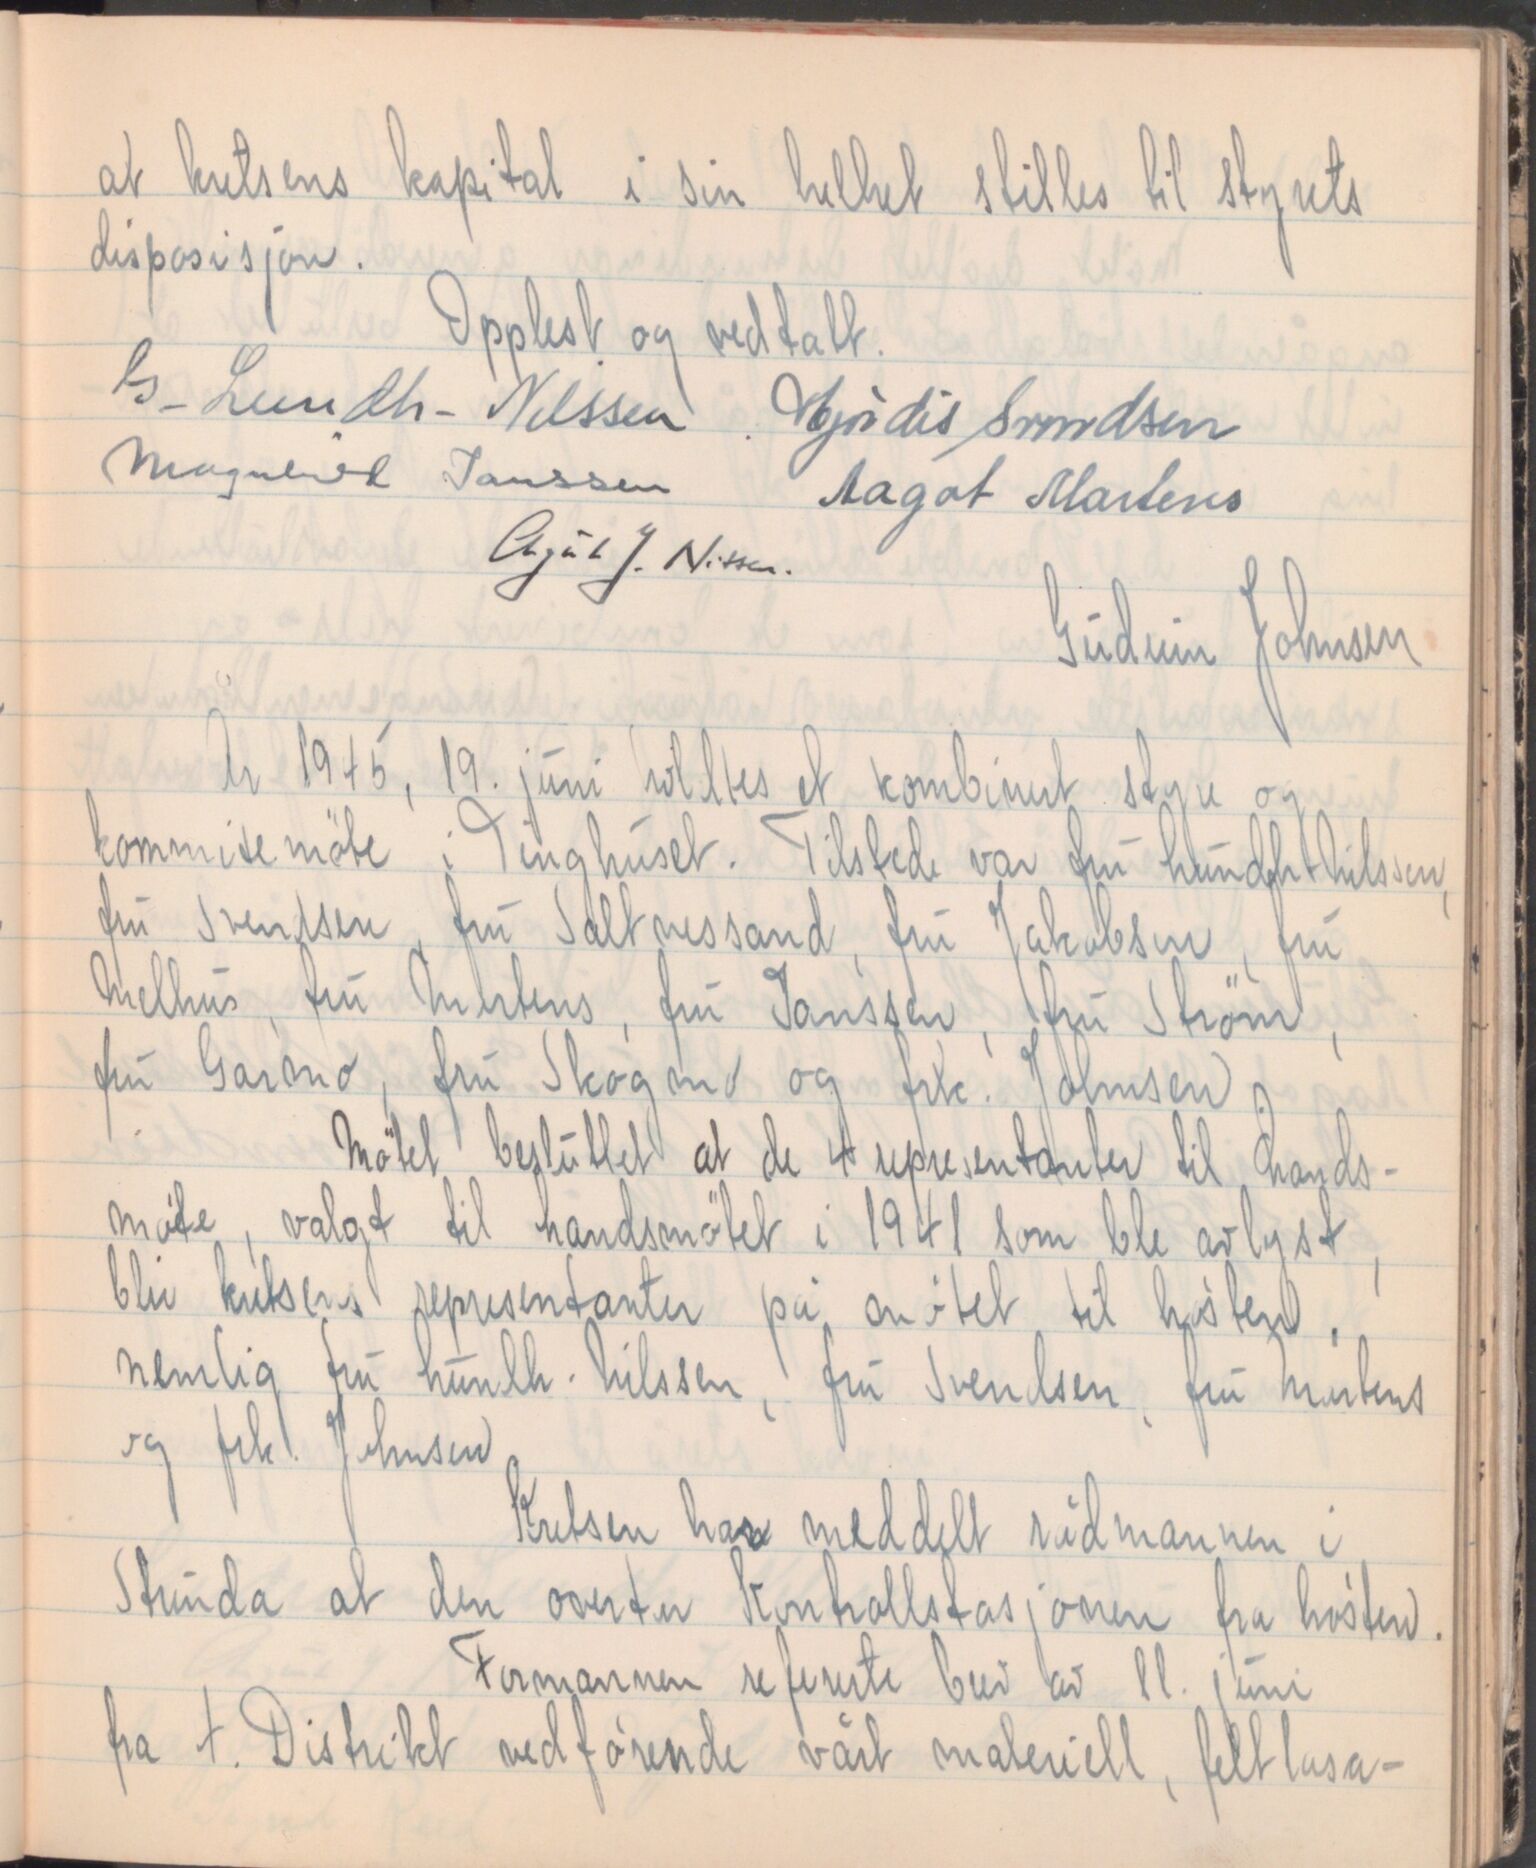 at kretsens kapital i sin helhet stilles til styrets
disposisjon.
Opplest og vedtatt.
G. Lundh-Nilssen. Hjördis Svendsen
Margueritt Janssen Aagot Martens
J. Nissen.
Gudrun Johnsen
År 1945, 19. juni holdtes et kombinert styre og
kommitemöte i Tinghuset. Tilstede var fru Lundh-Nilssen,
fru Svendsen, fru Saltnessand, fru Jakobsen, fru
Melhus, fru Martens, fru Janssen, fru Ström,
fru Garmo, fru Skogmo og frk. Johnsen.
Mötet besluttet at de 4 representanter til Lands-
möte, valgt til Landsmötet i 1941 som ble avlyst,
blir kretsens representanter på mötet til hösten,
nemlig fru Lundh-Nilssen, fru Svendsen, fru Martens
og frk. Johnsen
Kretsen har meddelt rådmannen i
Strinda at den overtar Kontrollstasjonen fra hösten.
Formannen refererte brev av 11. juni
fra 4. Distrikt vedförende vårt materiell, feltlasa-